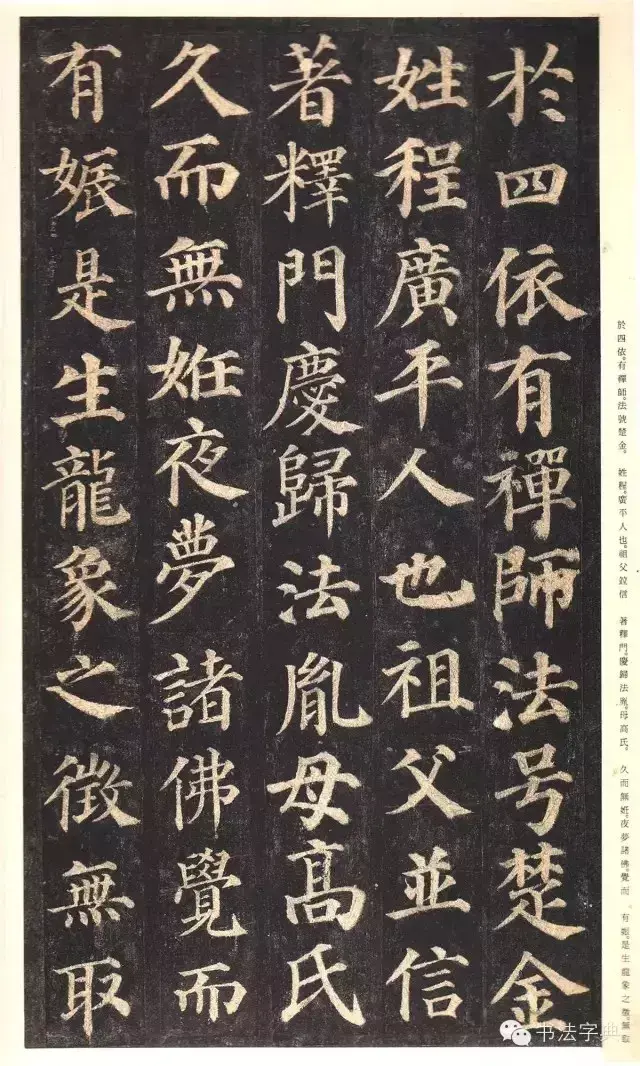 於四依有禪師法号楚金
姓程廣平人也祖父並信
著釋門慶歸法胤母髙氏
久而無姙夜夢諸佛覺而
有娠是生龍象之徵無取
於四依。有禪師。法號楚金。 姓程。廣平人也。祖父竝信 著釋門。慶歸法胤。母高氏。 久而無姙。夜夢諸佛。覺而 有娠。是生龍象之徵。無取
书法字典